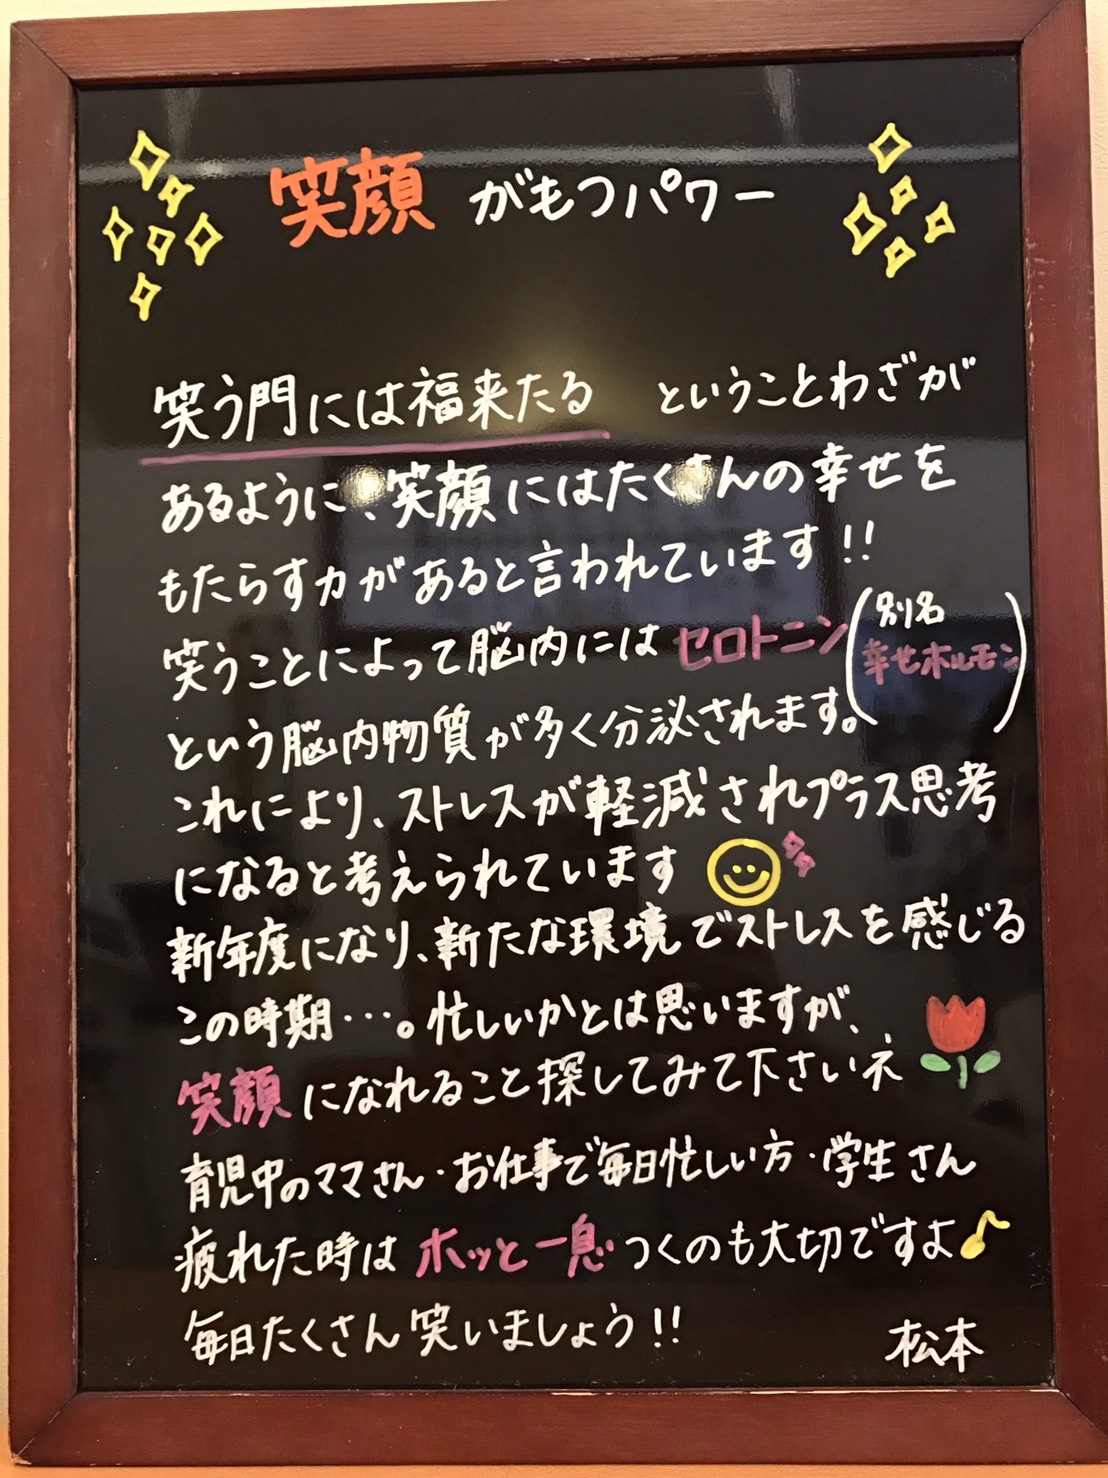 笑顔 がもつパワー
笑う門には福来たる ということわざが
あるように、笑顔にはたくさんの幸せを
もたらす力があると言われています!!
笑うことによって脳内には セロトニン(別名 幸せホルモン)
という脳内物質が多く分泌されます。
これにより、ストレスが軽減されプラス思考
になると考えられています
新年度になり、新たな環境でストレスを感じる
この時期…。忙しいかとは思いますが、
笑顔になれること探してみて下さいネ
育児中のママさん・お仕事で毎日忙しい方・学生さん
疲れた時は ホッと一息 つくのも大切ですよ♪
毎日たくさん笑いましょう!!
松本